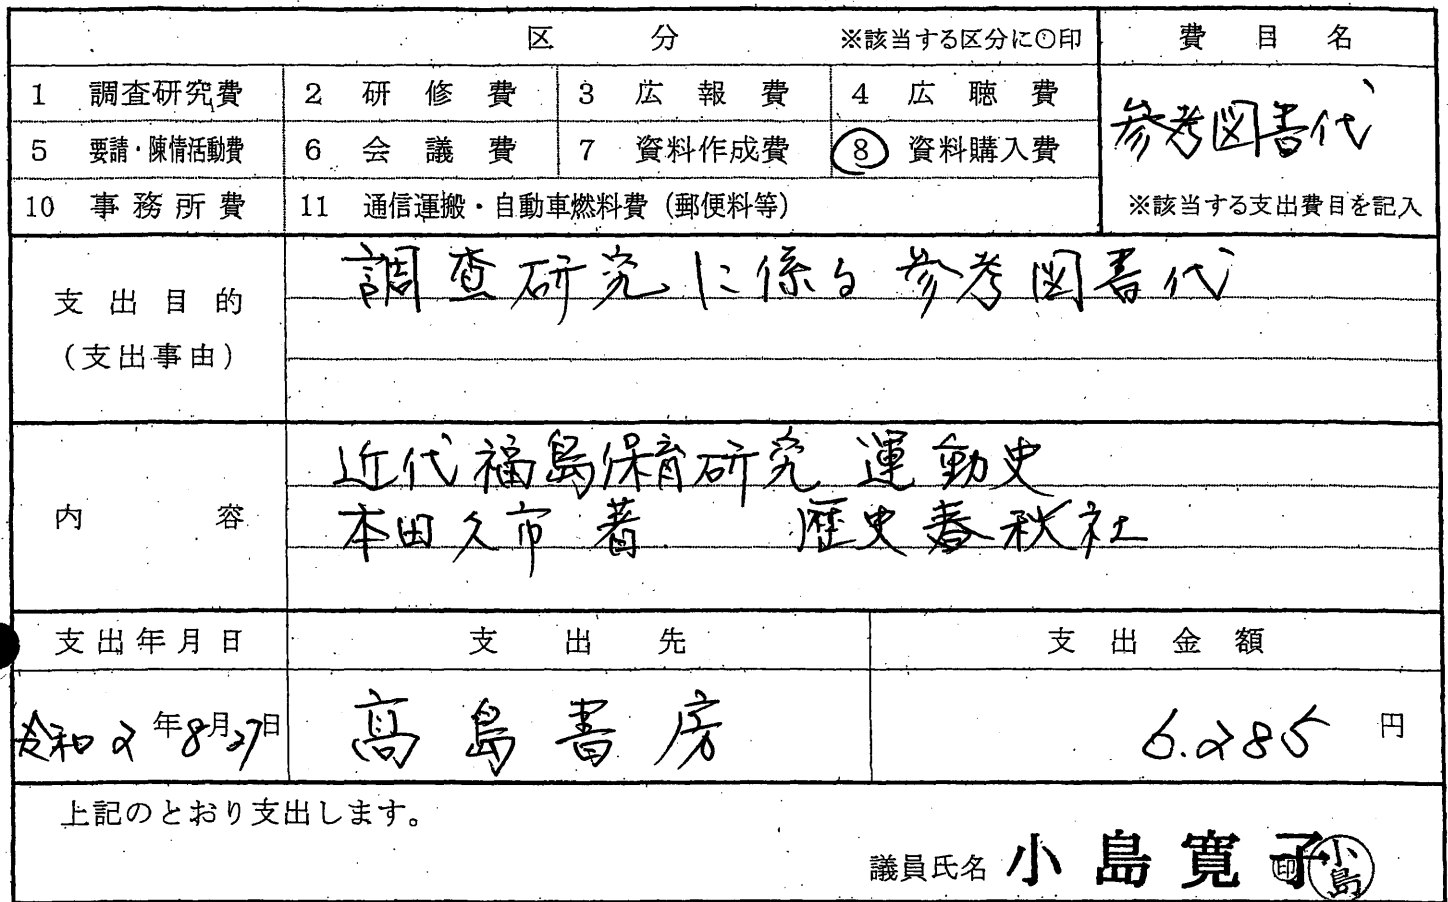 区分 ※該当する区分に○印 費目名
1 調査研究費 2 研修費 3 広報費 4 広聴費
参考図書代
5 要請・陳情活動費 6 会議費 7 資料作成費 8 資料購入費
10 事務所費 11 通信運搬・自動車燃料費(郵便料等) ※該当する支出費目を記入
支出目的
(支出事由)
調査研究に係る参考図書代
内容
近代福島保育研究運動史
本田久市著 歴史春秋社
支出年月日 支出先 支出金額
令和2年8月27日 髙島書房 6.285円
上記のとおり支出します。
議員氏名 小島寛子 印 小島